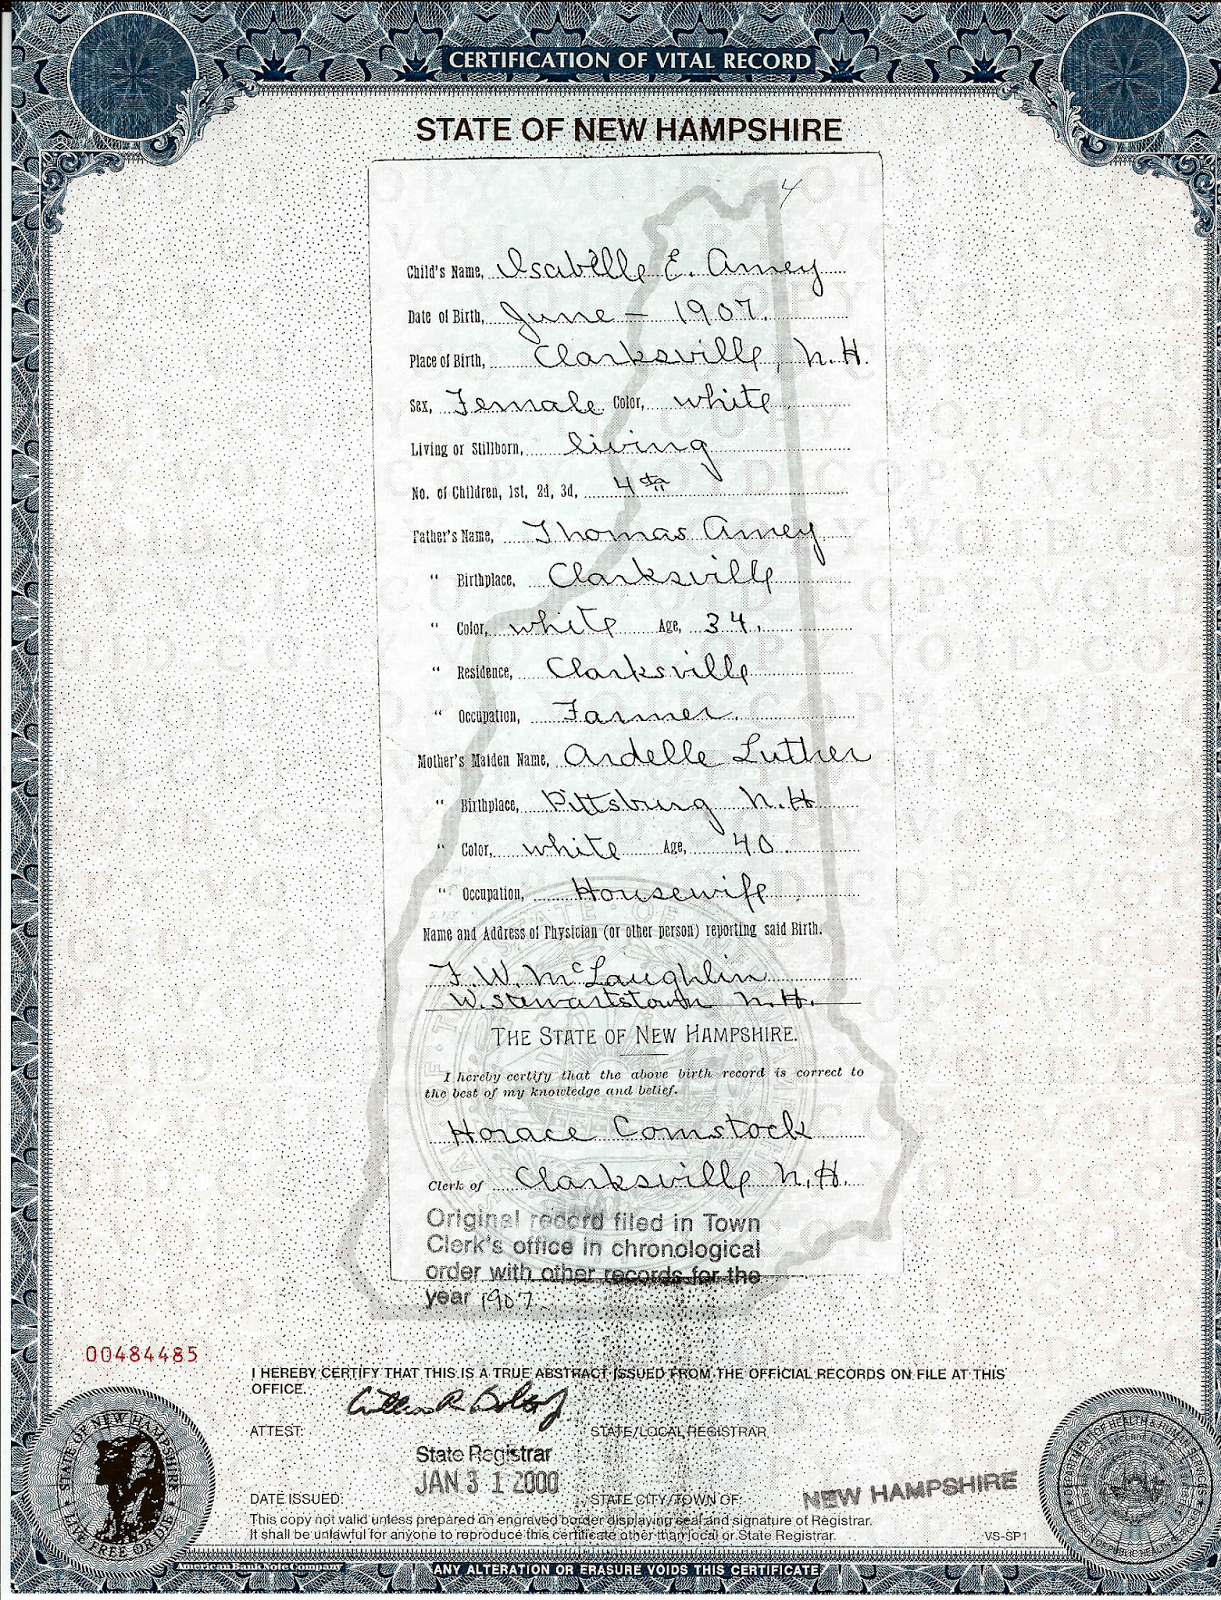 CERTIFICATION OF VITAL RECORD
STATE OF NEW HAMPSHIRE
4
Child's Name, Isabelle E. Amey
Date of Birth, June – 1907.
Place of Birth, Clarksville, N.H.
Sex, Female. Color, white
Living or Stillborn, living
No. of Children, 1st, 2d, 3d, 4th
Father's Name, Thomas Amey
" Birthplace, Clarksville
" Color, white Age, 34.
" Residence, Clarksville
" Occupation, Farmer.
Mother's Maiden Name, Ardelle Luther
" Birthplace, Pittsburg N.H
" Color, white Age, 40
" Occupation, Housewife
Name and Address of Physician (or other person) reporting said Birth.
F.W. McLaughlin
W. Stewartstown N.H.
THE STATE OF NEW HAMPSHIRE.
I hereby certify that the above birth record is correct to
the best of my knowledge and belief.
Horace Comstock
Clerk of Clarksville N.H.
Original record filed in Town
Clerk's office in chronological
order with other records for the
year 1907
00484485
I HEREBY CERTIFY THAT THIS IS A TRUE ABSTRACT ISSUED FROM THE OFFICIAL RECORDS ON FILE AT THIS
OFFICE.
ATTEST: STATE/LOCAL REGISTRAR
State Registrar
JAN 31 2000
DATE ISSUED: STATE CITY/TOWN OF: NEW HAMPSHIRE
This copy not valid unless prepared on engraved border displaying seal and signature of Registrar.
It shall be unlawful for anyone to reproduce this certificate other than local or State Registrar. VS-SP1
STATE OF NEW HAMPSHIRE
LIVE FREE OR DIE
American Bank Note Company
ANY ALTERATION OR ERASURE VOIDS THIS CERTIFICATE